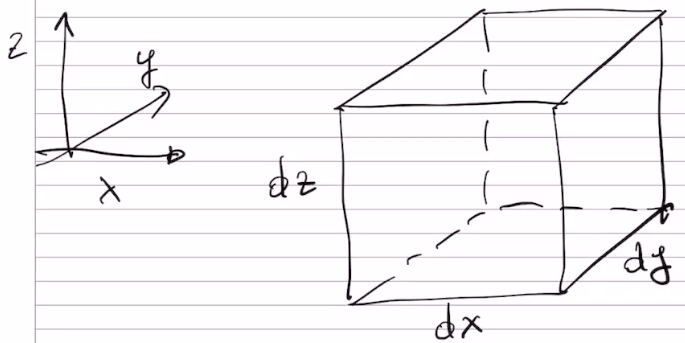 z
y
x
dz
dy
dx